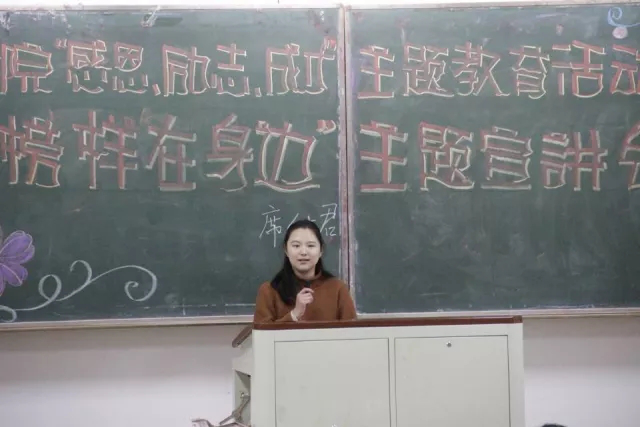 院“感恩、励志、成才”主题教育活动
榜样在身边”主题宣讲会
席 君